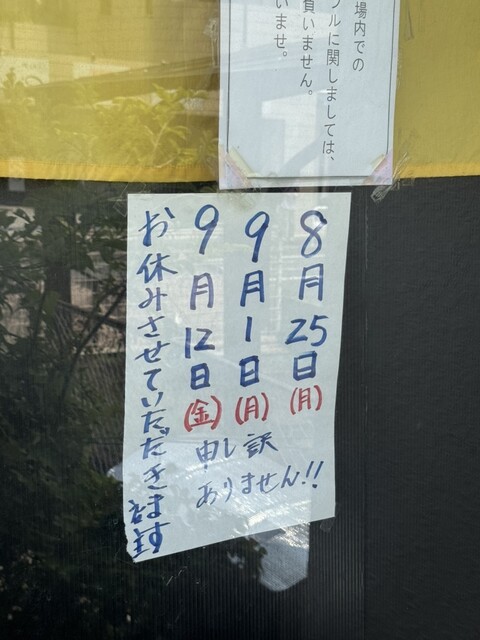 場内での
ブルに関しましては、
負いません。
いませ。
8月25日(月)
9月1日(月)
9月12日(金)
申し訳
ありません!!
お休みさせていただきます